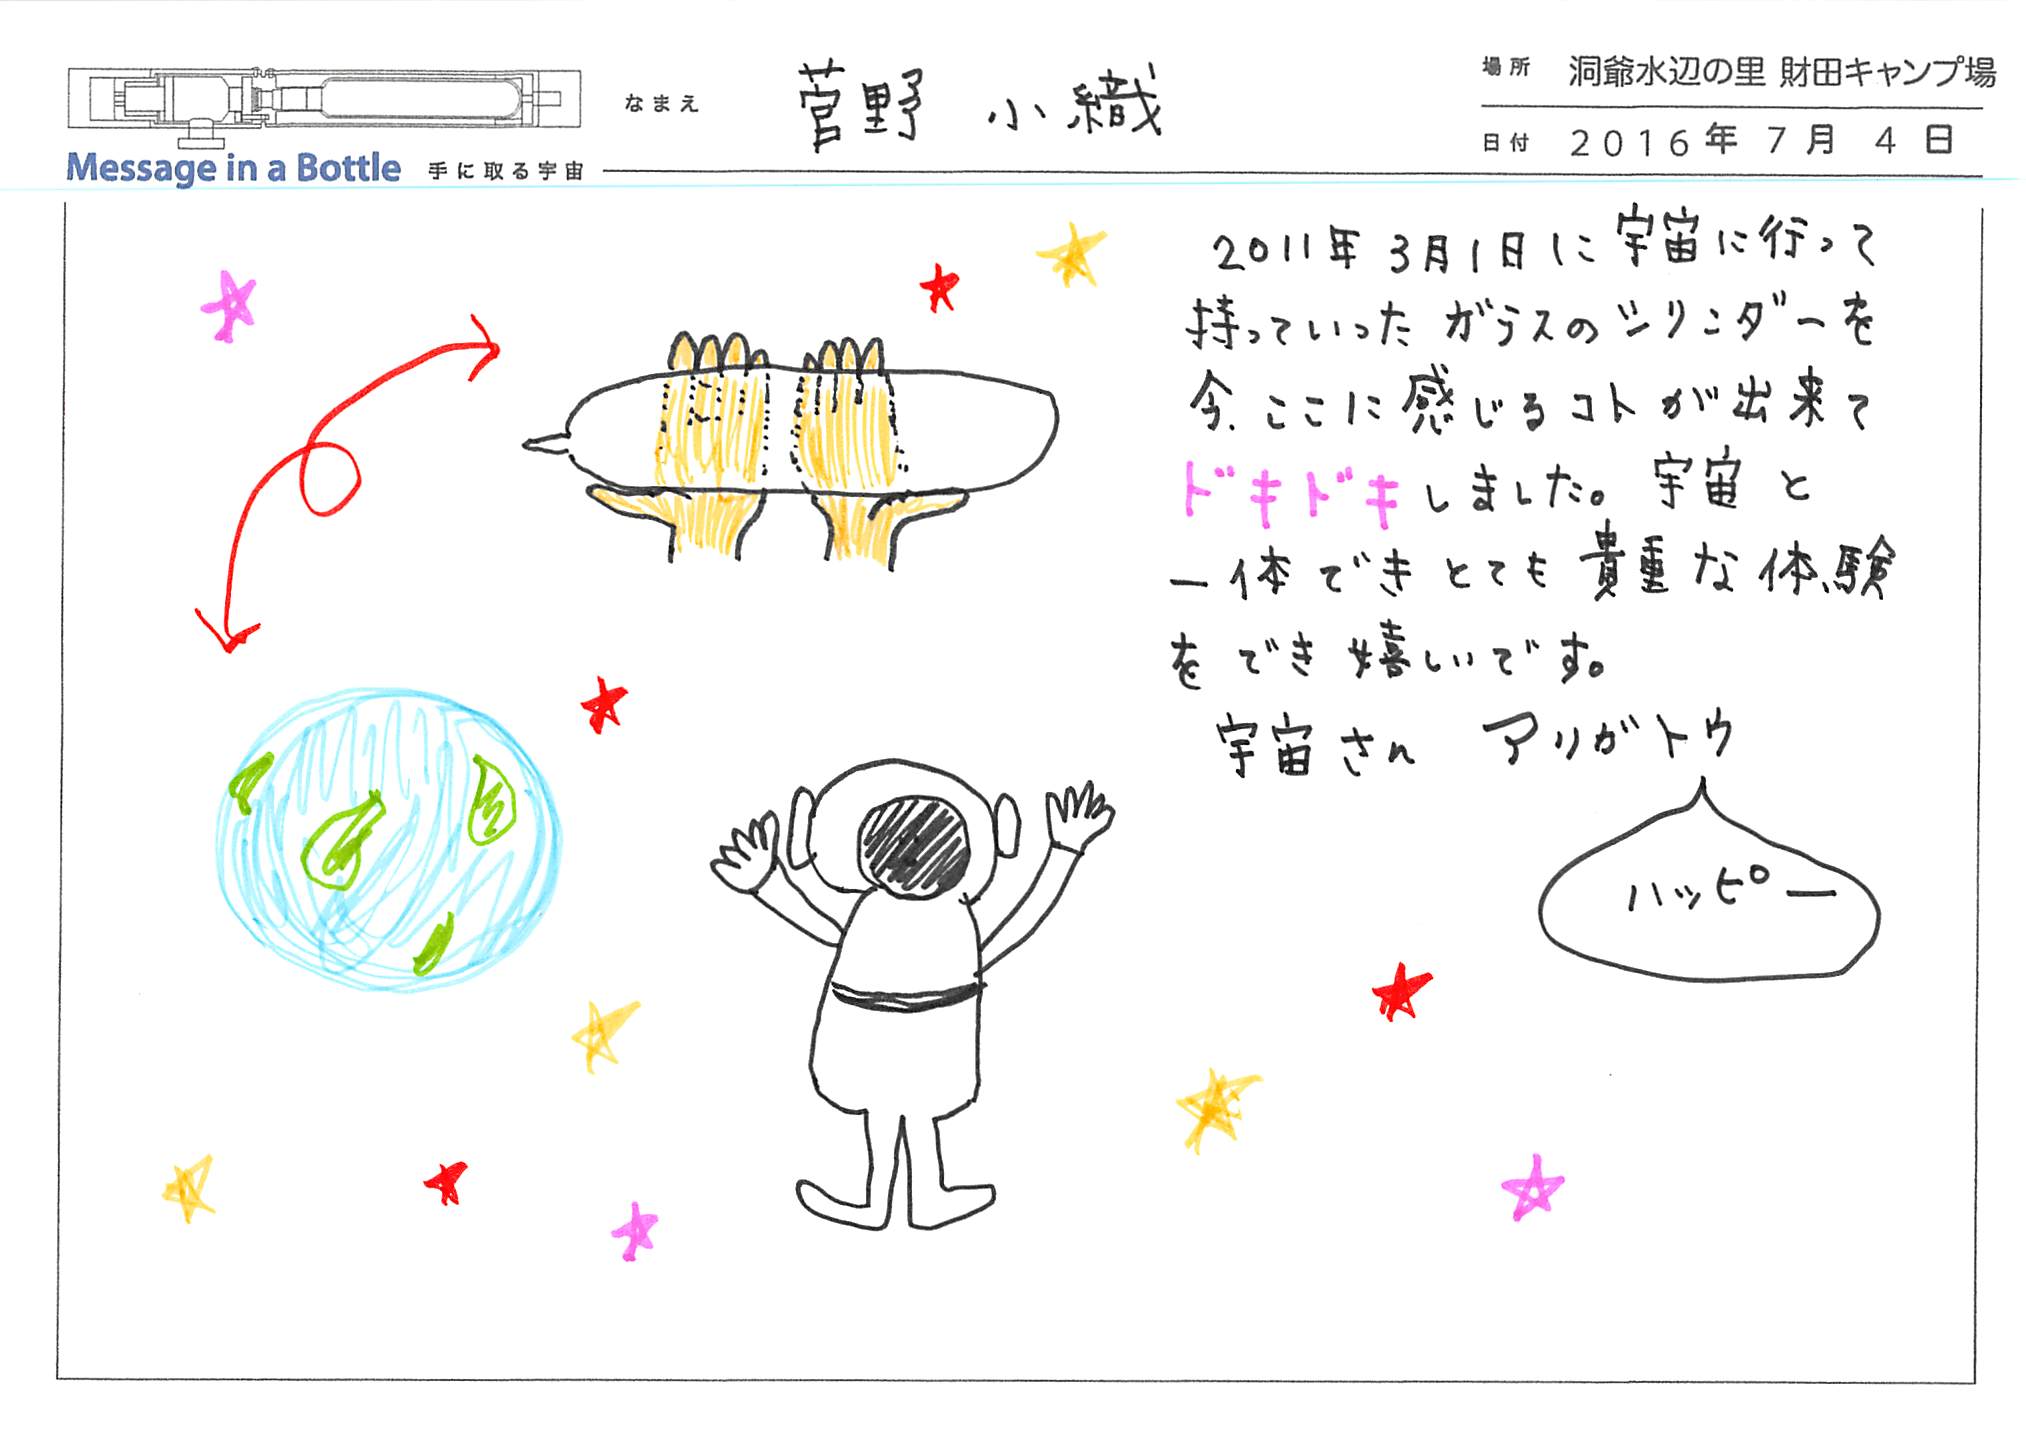 場所 洞爺水辺の里 財田キャンプ場
なまえ 菅野 小織
日付 2016年 7月 4日
Message in a Bottle 手に取る宇宙
2011年3月1日に宇宙に行って
持っていった ガラスのシリンダーを
今、ここに感じるコトが出来て
ドキドキしました。宇宙と
一体できとても貴重な体験
をでき嬉しいです。
宇宙さん アリガトウ
ハッピー